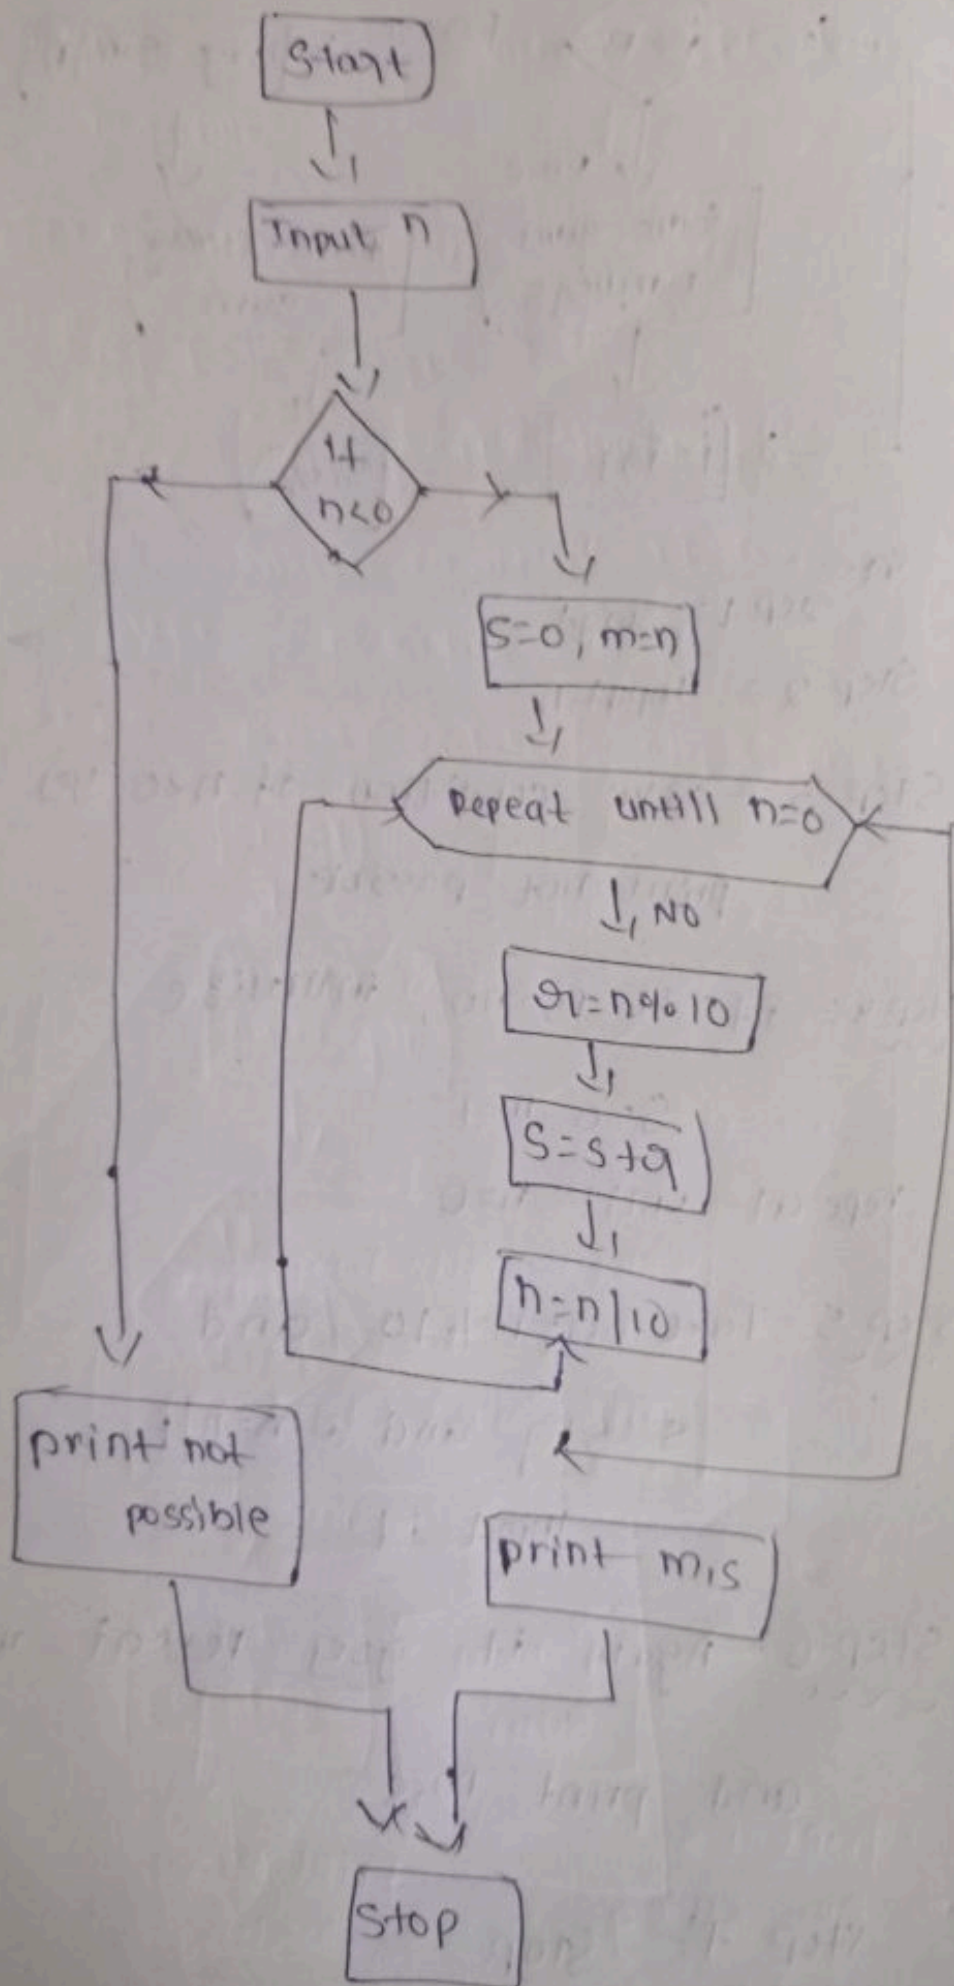 Start
Input n
If
n<0
S=0, m=n
Repeat untill n=0
NO
r=n%10
S=s+r
n=n/10
print not
possible
print m,s
Stop